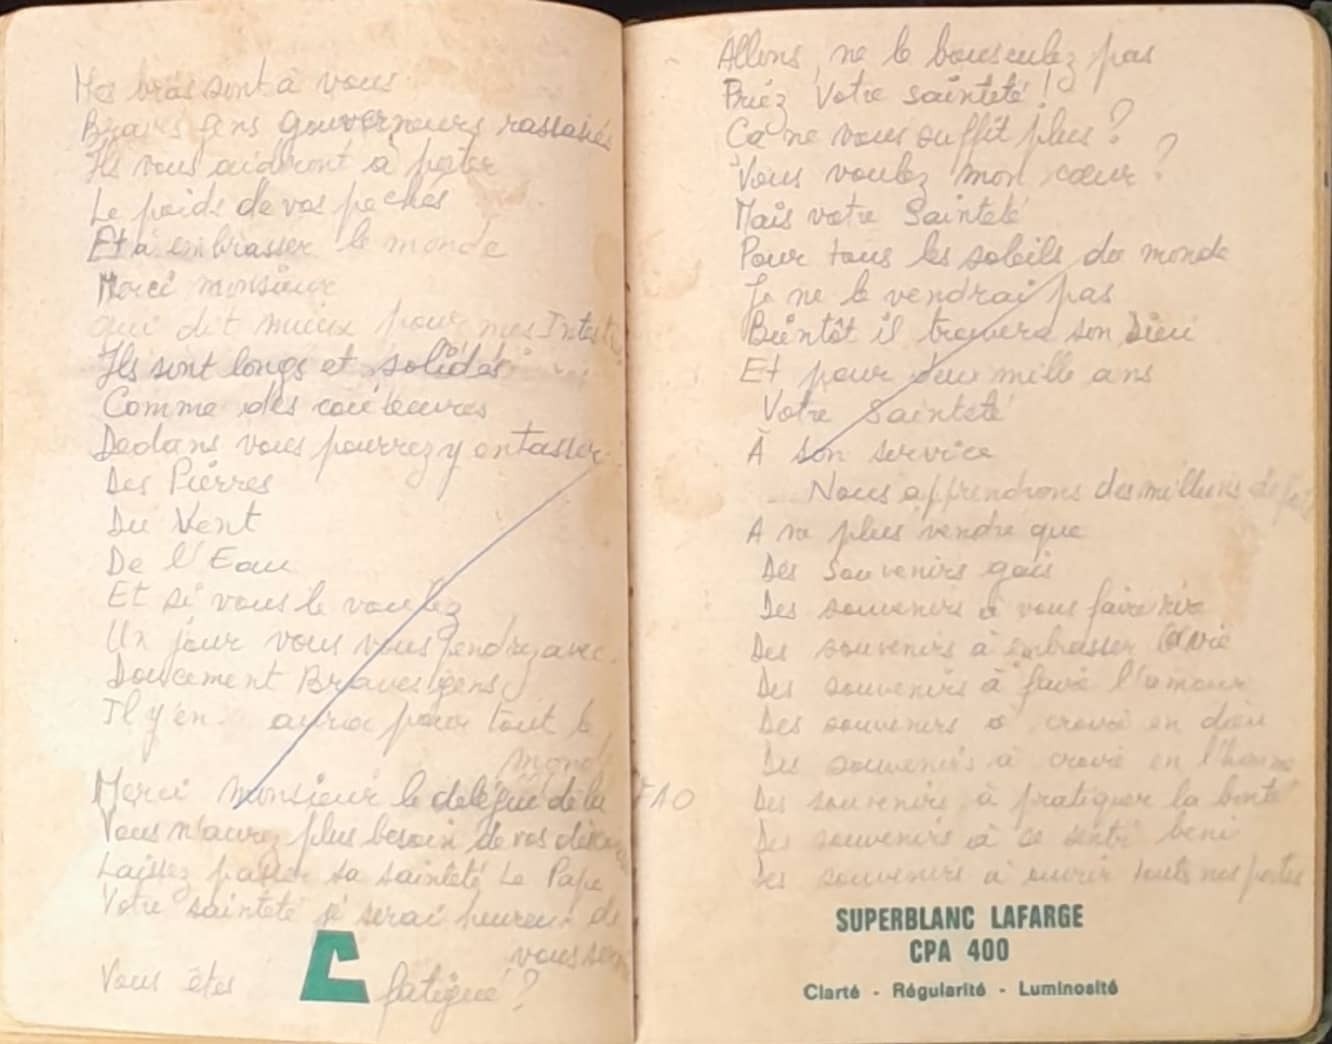 Mes bras sont à vous
Braves gens gouverneurs rassasiés
Ils vous aideront à porter
Le poids de vos pechés
Et à embrasser le monde
Merci monsieur
qui dit mieux pour mes
Ils sont longs et solides
Comme des couleuvres
Dedans vous pourrez y entasser
Des Pierres
Du Vent
De l'Eau
Et si vous le voulez
Un jour vous vous pendrez avec
Doucement Braves gens
Il y en aura pour tout le
mond
Merci monsieur le delégué de la F.A.O
Vous n'aurez plus besoin de vos
Laissez passer sa sainteté Le Pape
Votre sainteté je serai heureux de
vous
Vous êtes fatigué ?
Allons ne le bousculez pas
Priez Votre sainteté !
Ça ne vous suffit plus ?
Vous voulez mon cœur ?
Mais votre Sainteté
Pour tous les soleils du monde
Je ne le vendrai pas
Bientôt il trouvera son Dieu
Et pour deux mille ans
Votre Sainteté
À son service
Nous apprendrons des millions de
A ne plus vendre que
Des Souvenirs gais
Des souvenirs à vous faire rire
Des souvenirs à embrasser la vie
Des souvenirs à faire l'amour
Des souvenirs à croire en dieu
Des souvenirs à croire en l'homme
Des souvenirs à pratiquer la bonté
Des souvenirs à ce sentir beni
Des souvenirs à ouvrir touts nos portes
SUPERBLANC LAFARGE
CPA 400
Clarté - Régularité - Luminosité